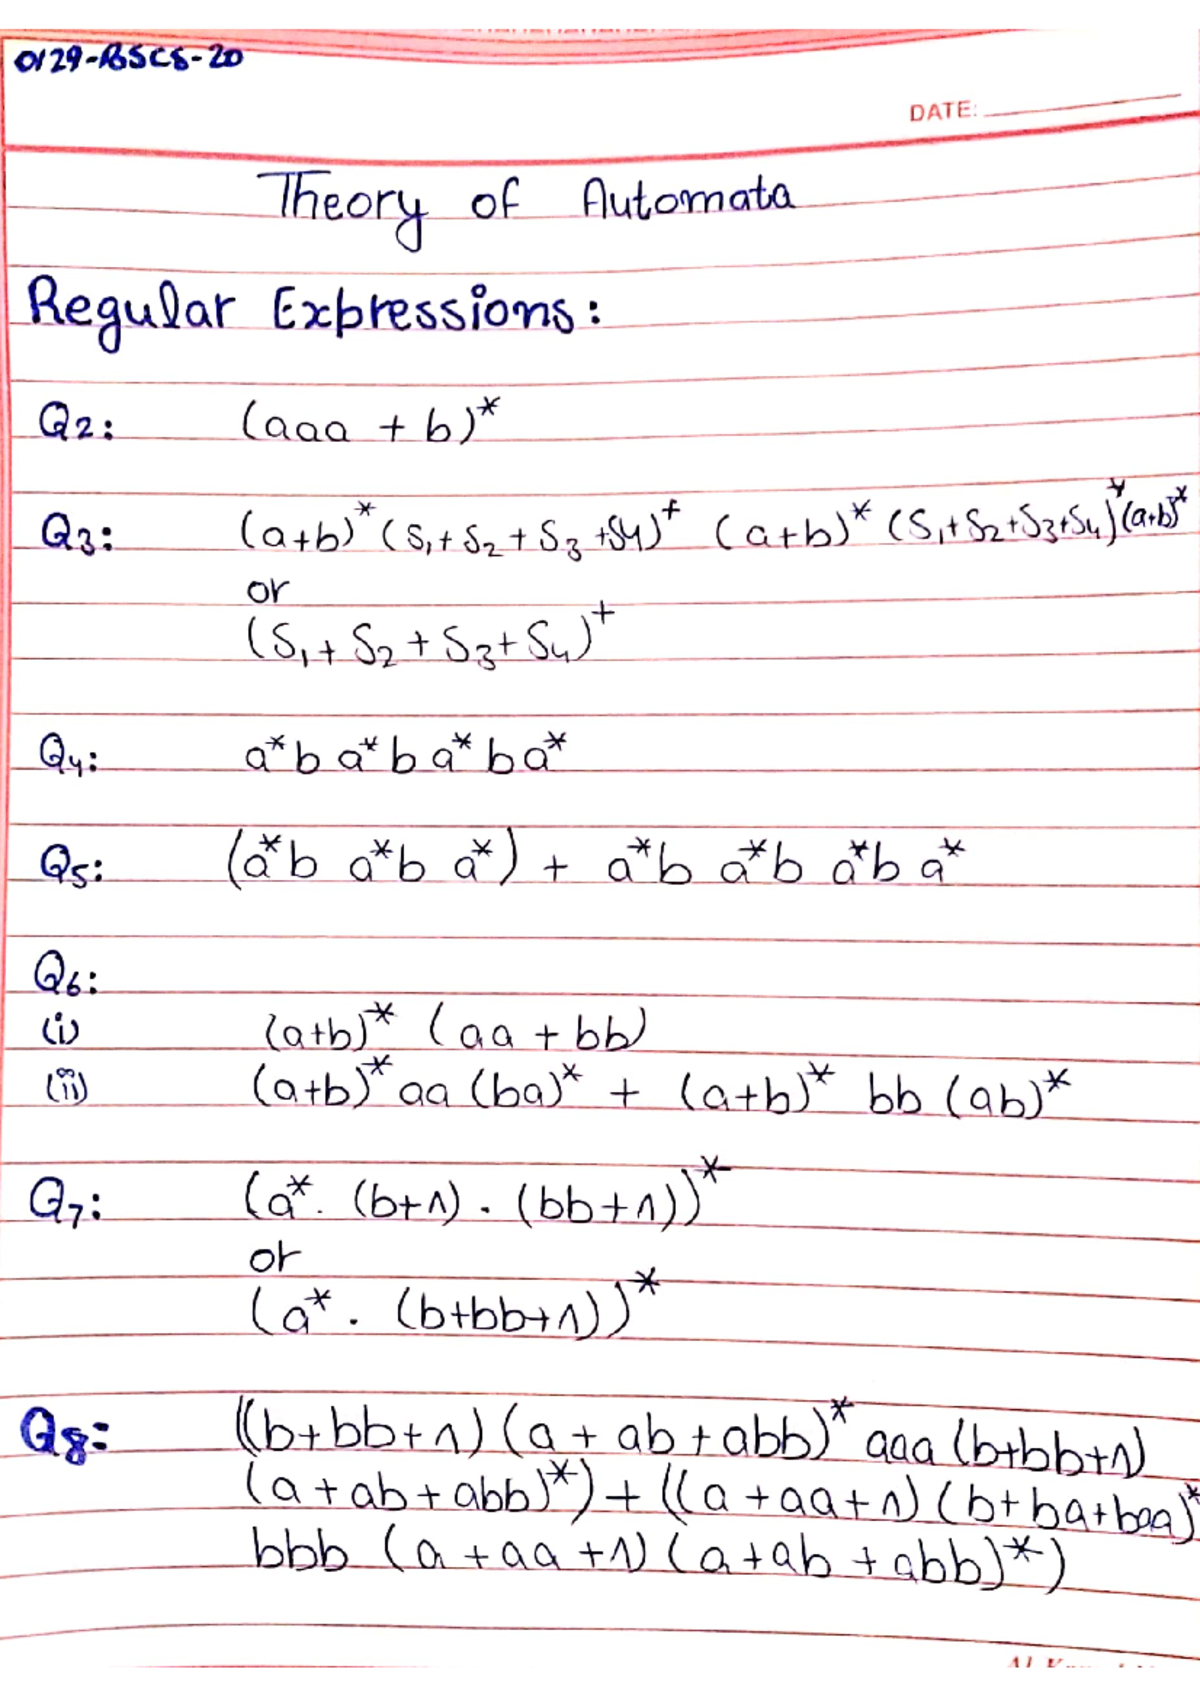 0129-BSCS-20
DATE:
Theory of Automata
Regular Expressions:
Q2: (aaa + b)*
Q3: (a+b)* (S₁+S₂+S₃+S4)⁺ (a+b)* (S₁+S₂+S₃+S₄)* (a+b)*
or
(S₁+S₂+S₃+S₄)⁺
Q4: a*b a*b a*b a*
Q5: (a*b a*b a*) + a*b a*b a*b a*
Q6:
(i) (a+b)* (aa + bb)
(ii) (a+b)* aa (ba)* + (a+b)* bb (ab)*
Q7: (a* . (b+Λ) . (bb+Λ))*
or
(a* . (b+bb+Λ))*
Q8: ((b+bb+Λ)(a + ab + abb)* aaa (b+bb+Λ)
(a + ab + abb)*) + ((a + aa + Λ)(b + ba + baa)*
bbb (a + aa + Λ)(a + ab + abb)*)